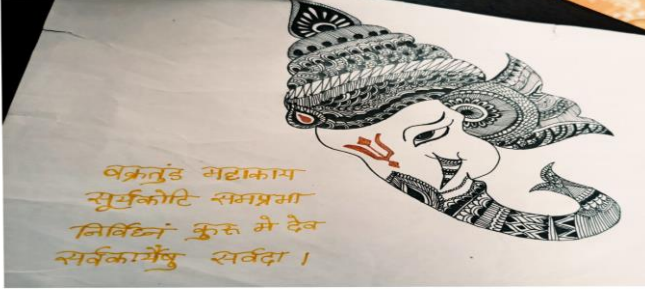 वक्रतुंड महाकाय
सूर्यकोटि समप्रभा
निर्विघ्नं कुरू मे देव
सर्वकार्येषु सर्वदा ।